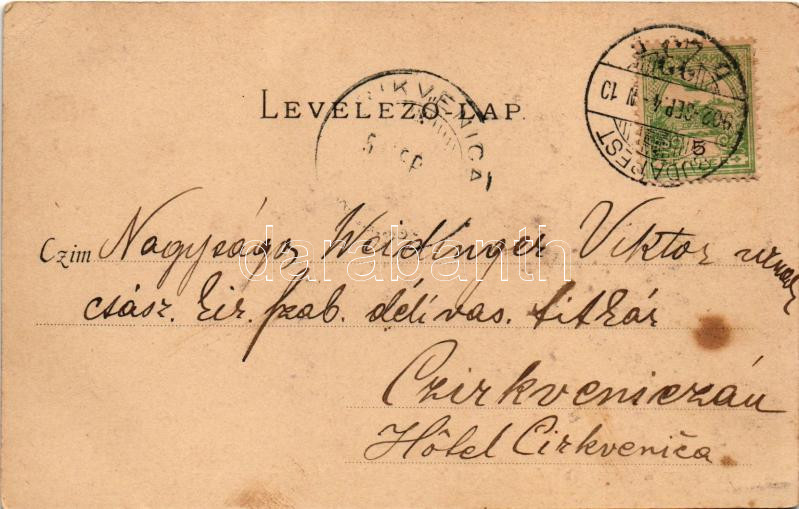 LEVELEZŐ-LAP.
BUDAPEST
902 SEP. 4.
5
Czim Nagyságos Weidinger Viktor urnak
csász. kir. szab. délivas. titkár
Czirkveniczán
Hôtel Cirkveniča
darabanth